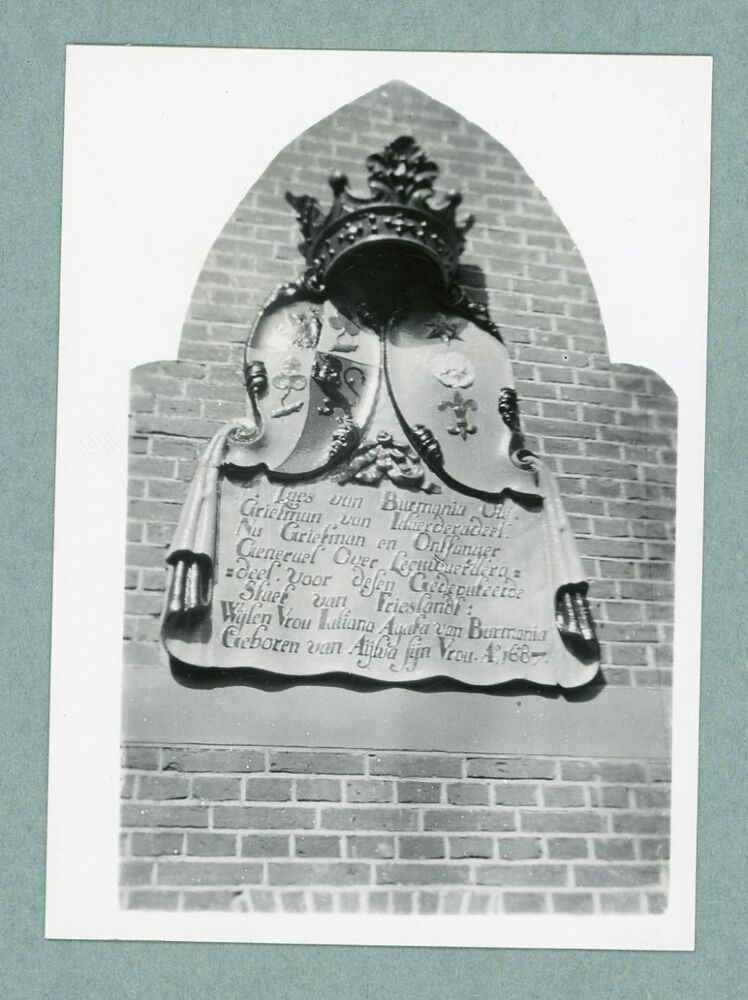 Taes van Burmania Out
Grietman van Idaerderadeel.
Nu Grietman en Ontfanger
Generael Over Leeuwerdera=
=deel. voor desen Gedeputeerde
Staet van Frieslandt:
Wijlen Vrou Iuliana Agata van Burmania
Geboren van Aijlva sijn Vrou. Aº, 1687.